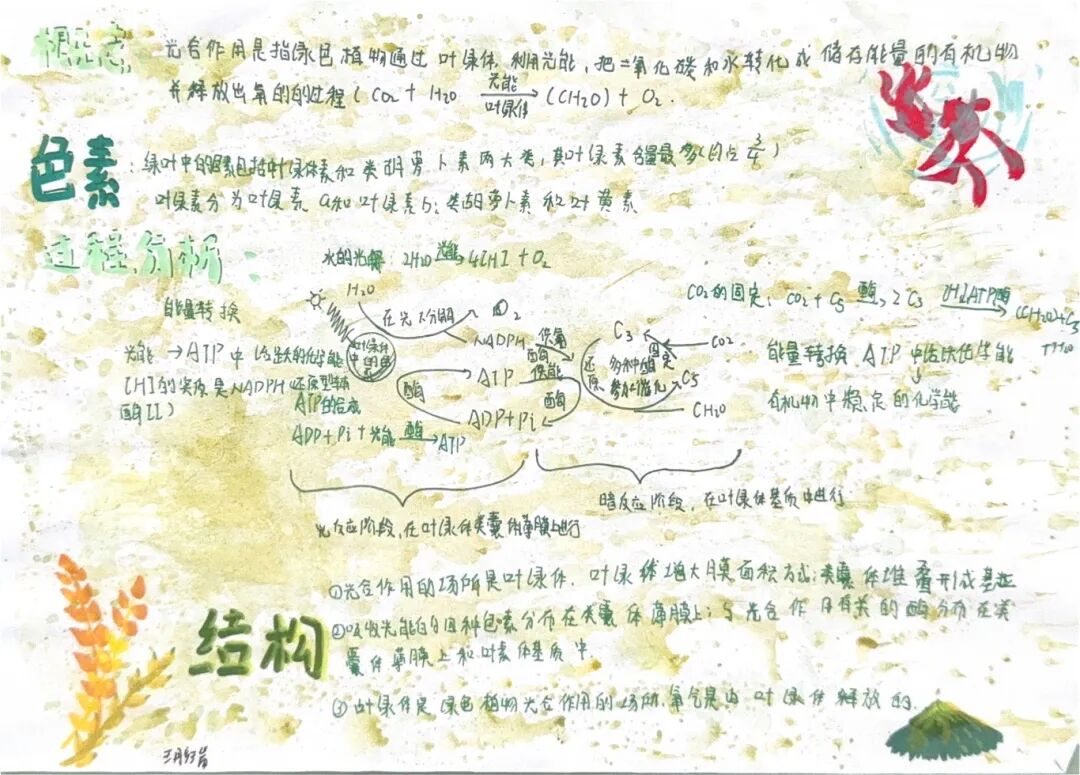 概念
光合作用是指绿色植物通过叶绿体,利用光能,把二氧化碳和水转化成储存能量的有机物
并释放出氧的的过程(CO₂ + H₂O 光能 叶绿体 → (CH₂O) + O₂.
色素
:绿叶中的色素包括叶绿体素和类胡萝卜素两大类,其叶绿素含量最多(约占 3/4)
叶绿素分为叶绿素a和叶绿素b;类胡萝卜素和叶黄素
过程分析:
水的光解 2H₂O 光能→ 4[H] + O₂
能量转换
光能 → ATP中活跃的化学能
[H]的实质是NADPH(还原型辅
酶II)
ATP的合成
ADP + Pi + 光能 酶→ ATP
H₂O
在光下分解
O₂
NADPH
供氢
酶
供能
ATP
酶
酶
ADP+Pi
C₃
还原
多种酶
参加催化
固定
C₅
CO₂
CH₂O
CO₂的固定: CO₂ + C₅ 酶→ 2C₃ [H]ATP酶→ (CH₂O)+C₃
+H₂O
能量转换 ATP中活跃化学能
↓
有机物中稳定的化学能
光反应阶段,在叶绿体类囊体薄膜上进行
暗反应阶段,在叶绿体基质中进行
结构
①光合作用的场所是叶绿体,叶绿体增大膜面积方式:类囊体堆叠形成基粒
②吸收光能的四种色素分布在类囊体薄膜上;与光合作用有关的酶分布在类
囊体薄膜上和叶绿体基质中.
③叶绿体是绿色植物光合作用的场所,氧气是由叶绿体释放的.